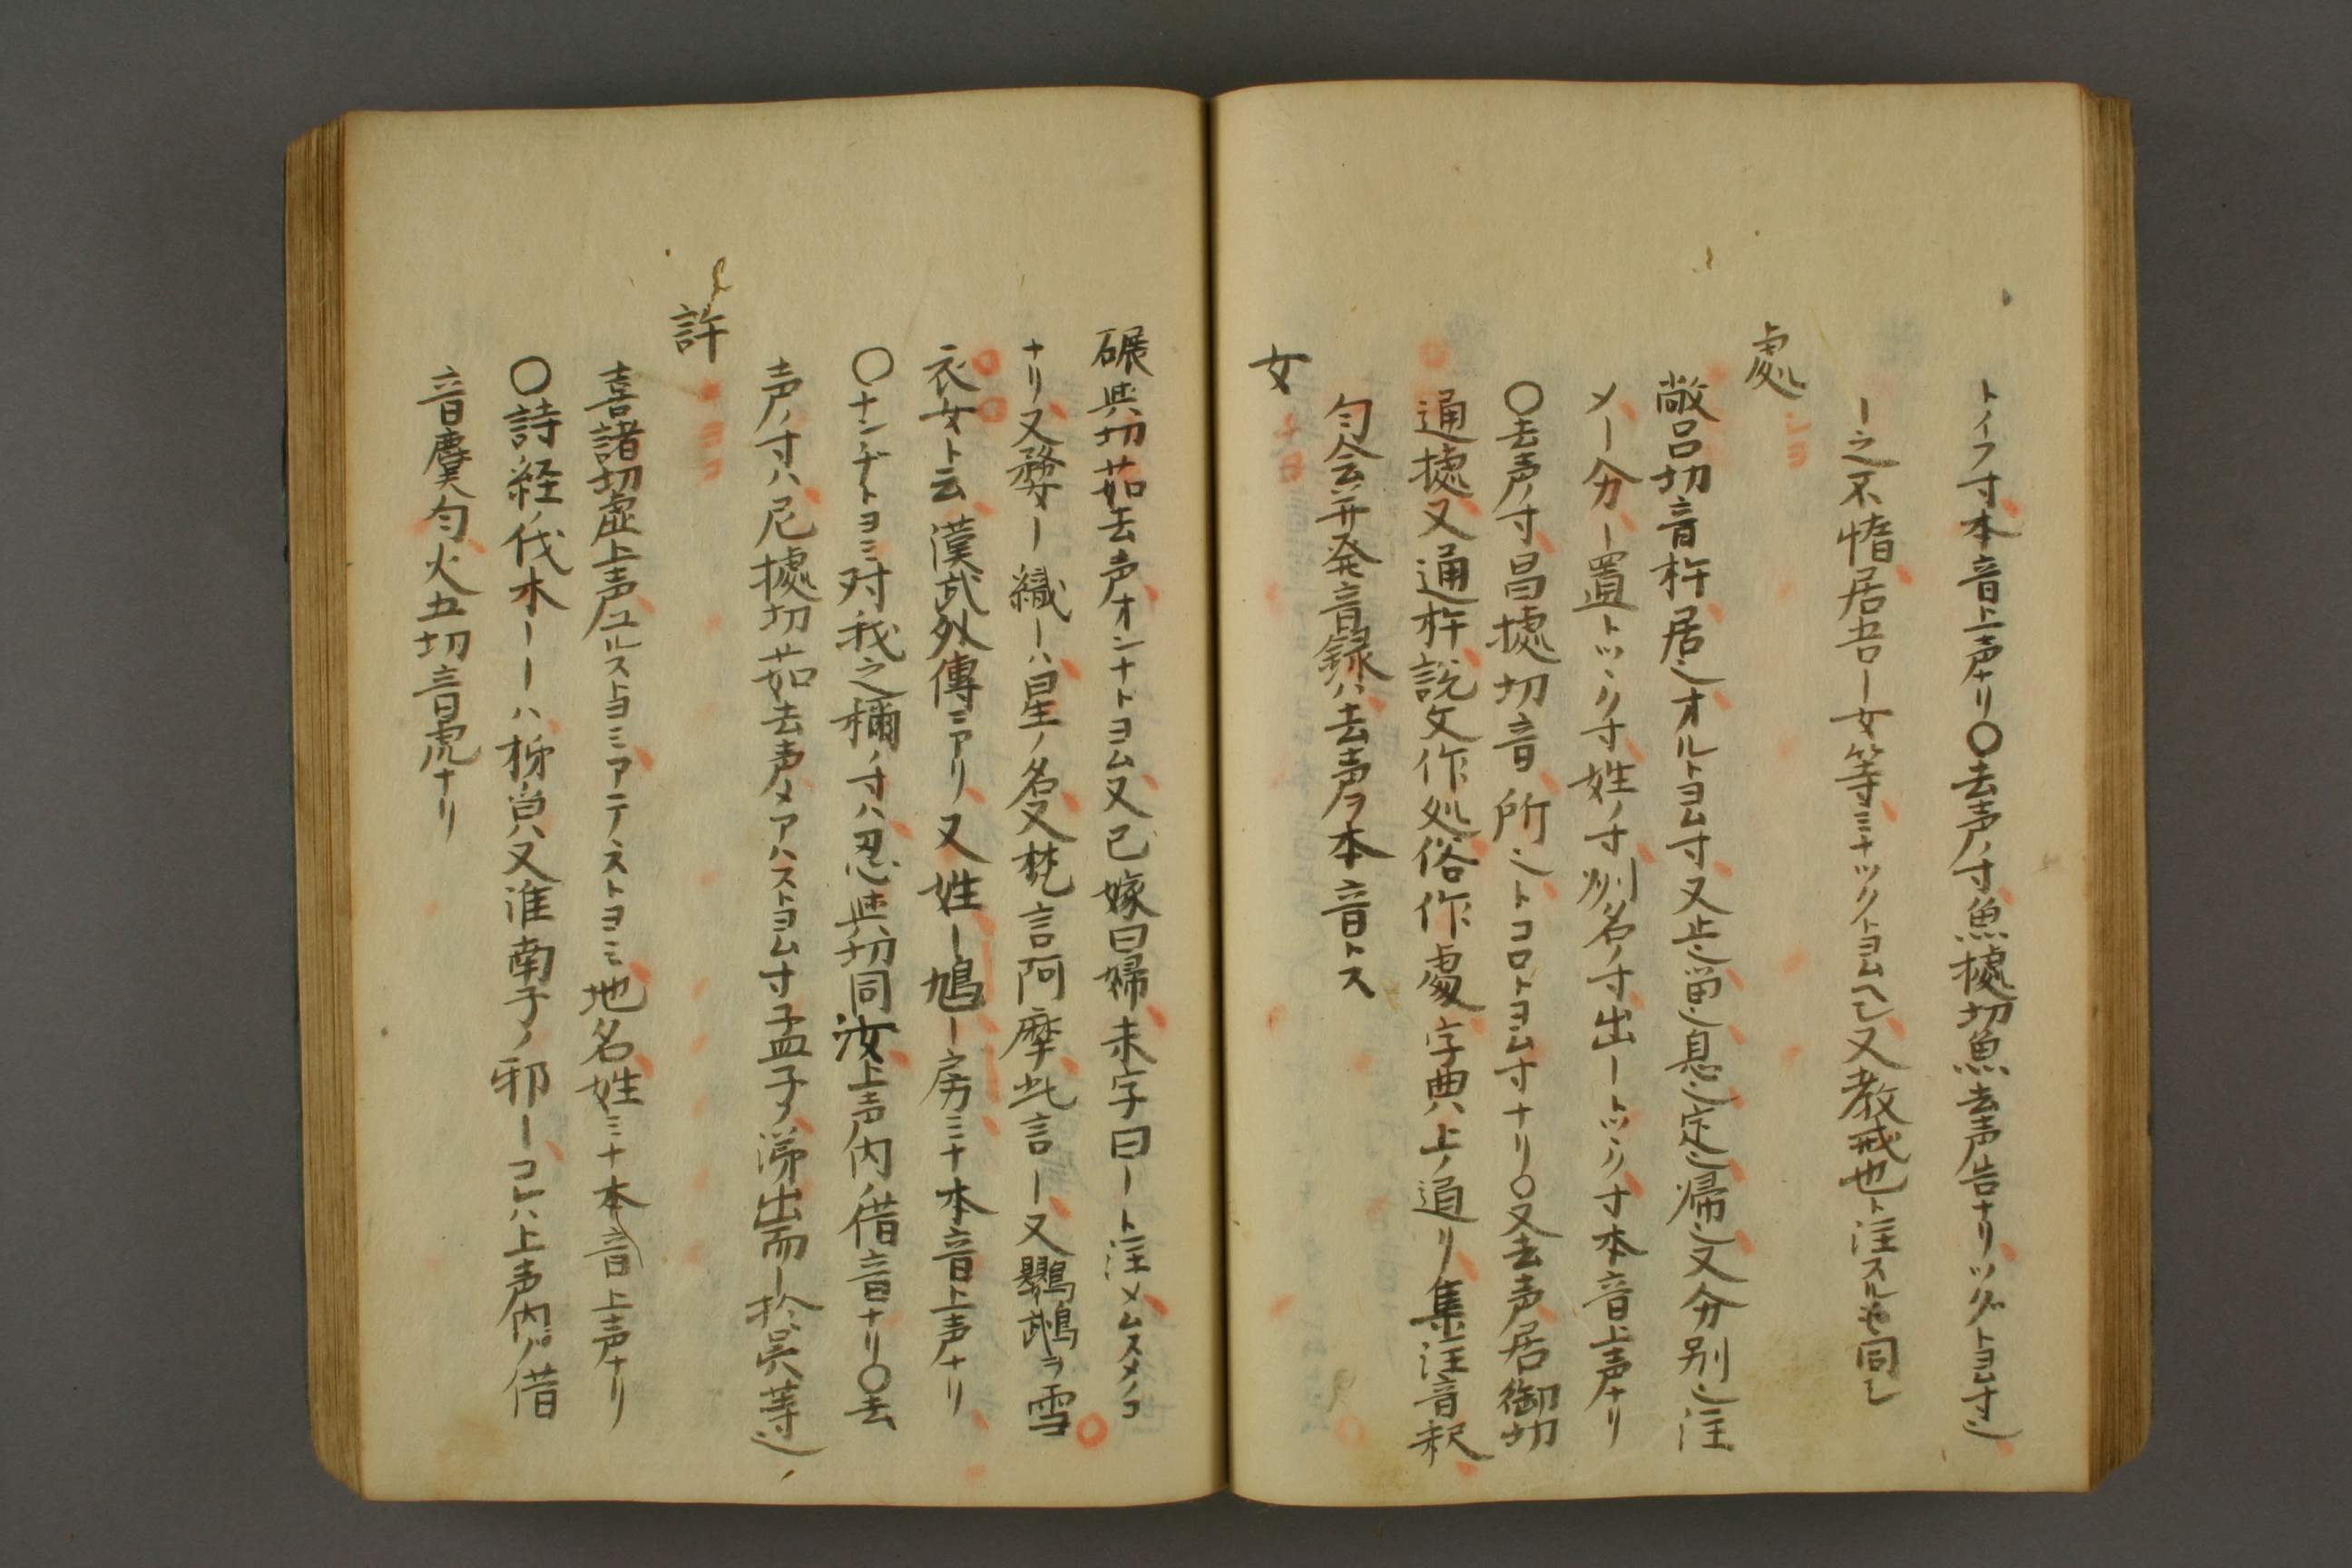 トイフ寸本音上声ナリ〇去声ノ寸魚據切魚去声告ナリツグトヨム寸辶
ー之不惰居吾ー女等ミナツクトヨムヘシ又教戒也ト注スルモ同シ
處 シヨ
敞呂切音杵居也オルトヨム寸又止也留也息也定也帰也又分別也注
メー分ー置トツヽク寸姓ノ寸州名ノ寸出ートツヽク寸本音上声ナリ
〇去声ノ寸昌據切音所也トコロトヨム寸ナリ〇又去声居御切
通據又通杵説文作処俗作䖏字典上ノ通リ集注音釈
匀会并発音録ハ去声ヲ本音トス
女
碾與切茹去声オンナトヨム又已嫁曰婦未字曰ート注メムスメノコ
ナリ又婺ー織ーハ星ノ名又梵言阿摩此言ー又鸚鵡ヲ雪
衣女ト云漢武外傳ニアリ又姓ー鳩ー房ミナ本音上声ナリ
〇ナンヂトヨミ対我之稱ノ寸ハ忍與切同汝上声内ノ借音ナリ〇去
声ノ寸ハ尼據切茹去声メアハストヨム寸孟子ノ涕出而ー於呉等辶
許 キヨコ
喜諸切虚上声ユルストヨミアテストヨミ地名姓ミナ本音上声ナリ
〇詩経ノ伐木ーーハ柹皃又淮南子ノ邪ーコレハ上声内ノ借
音麌匀火五切音虎ナリ